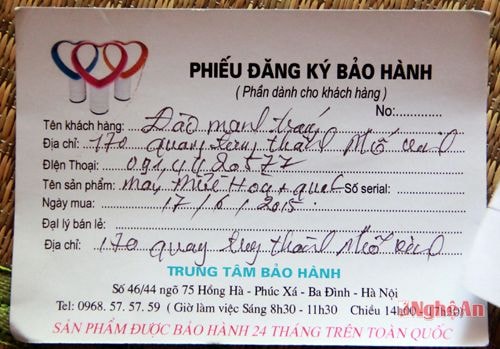 PHIẾU ĐĂNG KÝ BẢO HÀNH
( Phần dành cho khách hàng )
No:
Tên khách hàng: Đào mạnh
Địa chỉ: 170 quang trung thành phố vinh
Điện Thoại:
Tên sản phẩm: máy Số serial:
Ngày mua: 17/6/2015
Đại lý bán lẻ:
Địa chỉ: 170 quang trung thành phố vinh
TRUNG TÂM BẢO HÀNH
Số 46/44 ngõ 75 Hồng Hà - Phúc Xá - Ba Đình - Hà Nội
Tel: 0968. 57.57. 59 ( Giờ làm việc Sáng 8h30 - 11h30 Chiều 14h00 - 17h30)
SẢN PHẨM ĐƯỢC BẢO HÀNH 24 THÁNG TRÊN TOÀN QUỐC
NghệAn